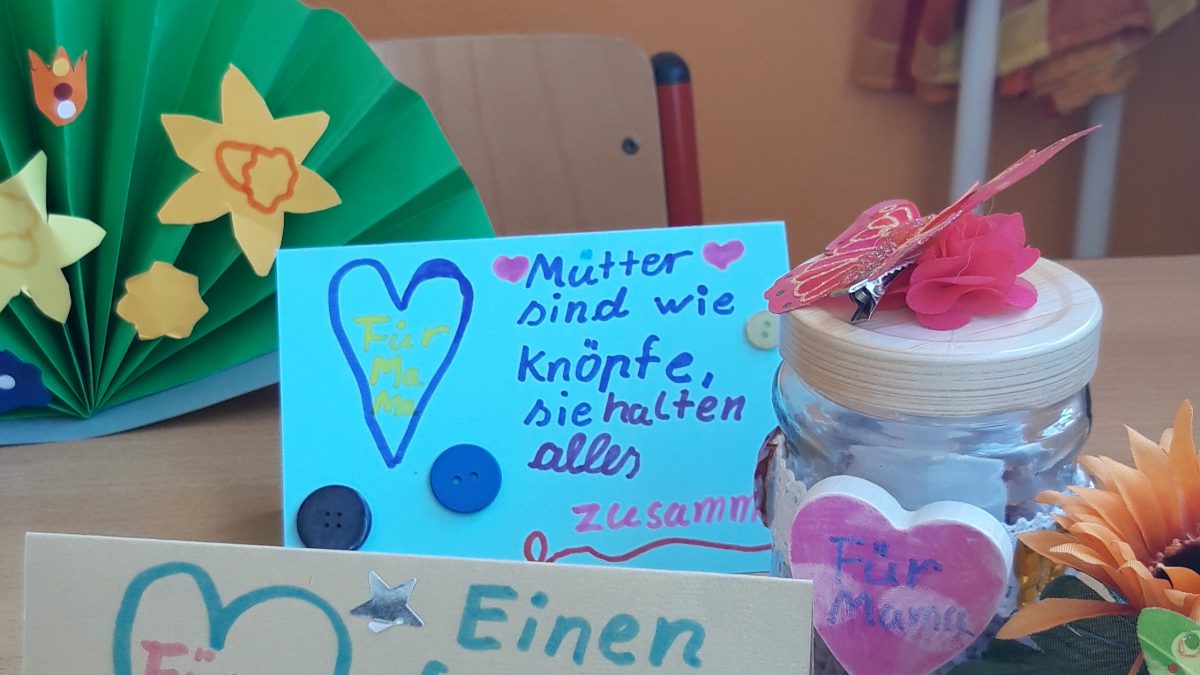 Für
Ma
Ma
Mütter
sind wie
Knöpfe,
sie halten
alles
zusamm
Für
Mama
Einen